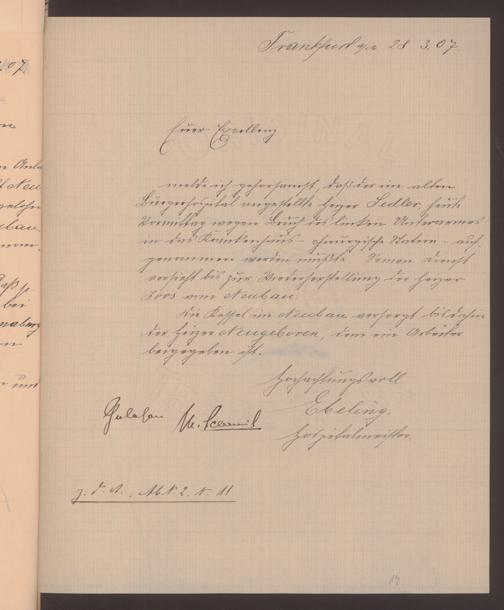 Frankfurt a/M 28.3.07
Euer Excellenz
melde ich gehorsamst, daß der im alten
Bürgerhospital angestellte Heizer Sedler, heute
Vormittag wegen Bruch des linken Unterarmes
in das Krankenhaus – chirurgische Station – auf-
genommen werden mußte. Seinen Dienst
versieht bis zur Wiederherstellung der Heizer
Zoos vom Neubau.
Die Kessel im Neubau versorgt bis dahin
der Heizer Neugeboren, dem ein Arbeiter
beigegeben ist.
Hochachtungsvoll
Ebeling.
Hospitalmeister.
Gelesen
z. d. A. Ab N 2. N. 11
19